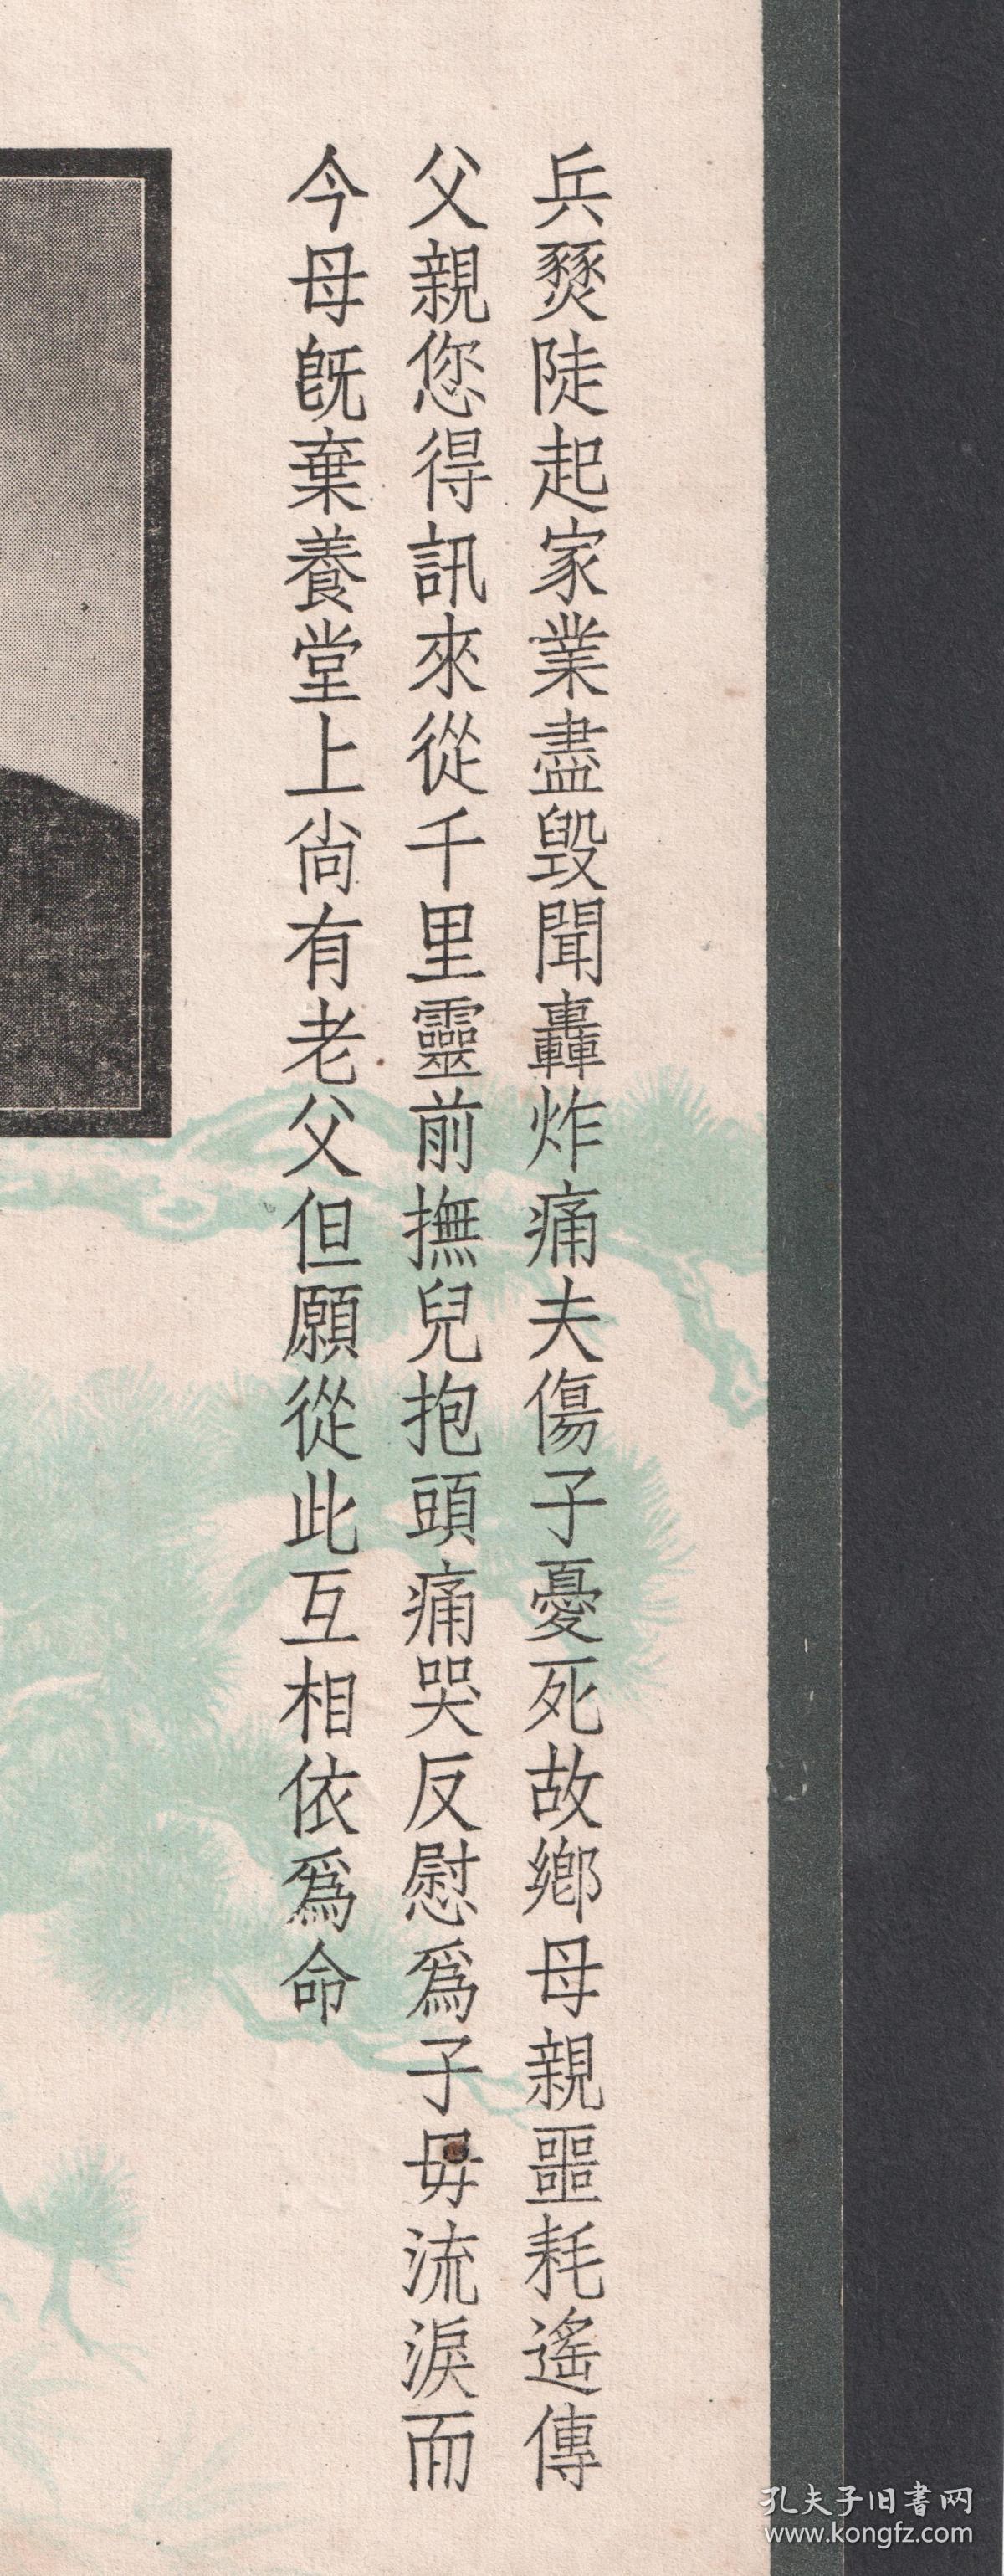 兵燹陡起家業盡毀聞轟炸痛夫傷子憂死故鄉母親噩耗遙傳
父親您得訊來從千里靈前撫兒抱頭痛哭反慰爲子毋流淚而
今母既棄養堂上尚有老父但願從此互相依爲命
孔夫子旧書网
www.kongfz.com